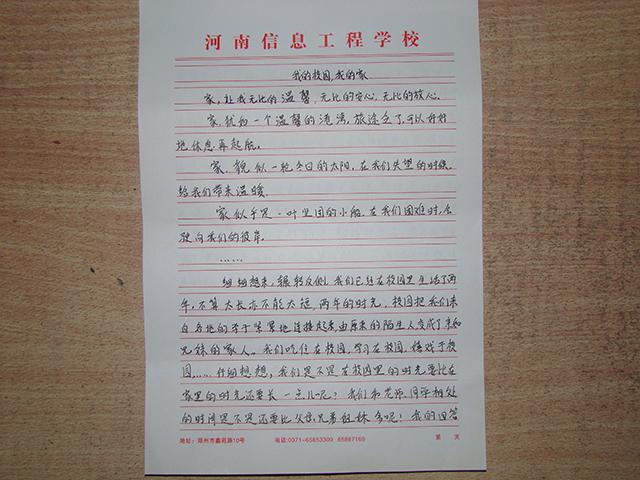 河南信息工程学校
我的校园,我的家
家,让我无比的温馨,无比的安心,无比的放心。
家,犹如一个温馨的港湾,旅途乏了,可以好好
地休息再起航。
家,貌似一轮冬日的太阳,在我们失望的时候,
给我们带来温暖。
家似乎是一叶坚固的小船,在我们困难时,
驶向我们的彼岸。
……
细细想来,辗转反侧,我们已经在校园里生活了两
年,不算太长亦不能太短,两年的时光,校园把我们来
自各地的学子紧紧地连接起来,由原来的陌生人变成了亲和
兄妹的家人。我们吃住在校园,学习在校园,嬉戏于校
园,……仔细想想,我们是不是在校园里的时光要比在
家里的时光还要长一点儿呢?我们和老师、同学相处
的时间是不是还要比父母兄弟姐妹多呢?我的回答
地址:郑州市鑫苑路10号 电话:0371-65853309 65867169 第 页